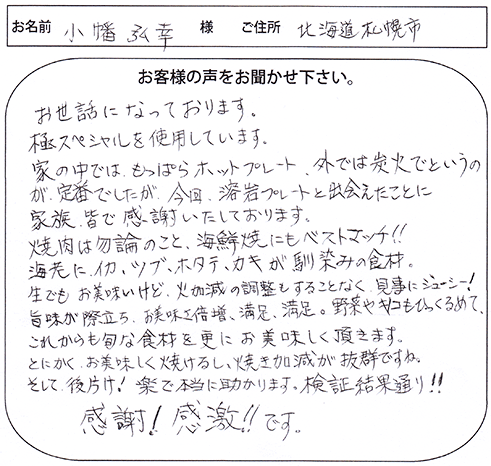 お名前 小幡 弘幸 様 ご住所 北海道札幌市
お客様の声をお聞かせ下さい。
お世話になっております。
極スペシャルを使用しています。
家の中では、もっぱらホットプレート、外では炭火でというの
が、定番でしたが、今回、溶岩プレートと出会えたことに
家族、皆で感謝いたしております。
焼肉は勿論のこと、海鮮焼にもベストマッチ!!
海老に、イカ、ツブ、ホタテ、カキが馴染みの食材。
生でもお美味いけど、火加減の調整をすることなく、見事にジューシー!
旨味が際立ち、お美味さ倍増、満足、満足。野菜やキノコもひっくるめて、
これからも旬な食材を更にお美味しく頂きます。
とにかく、お美味しく焼けるし、焼き加減が抜群ですね。
そして、後片け!楽で本当に助かります。検証結果通り!!
感謝!感激!!です。